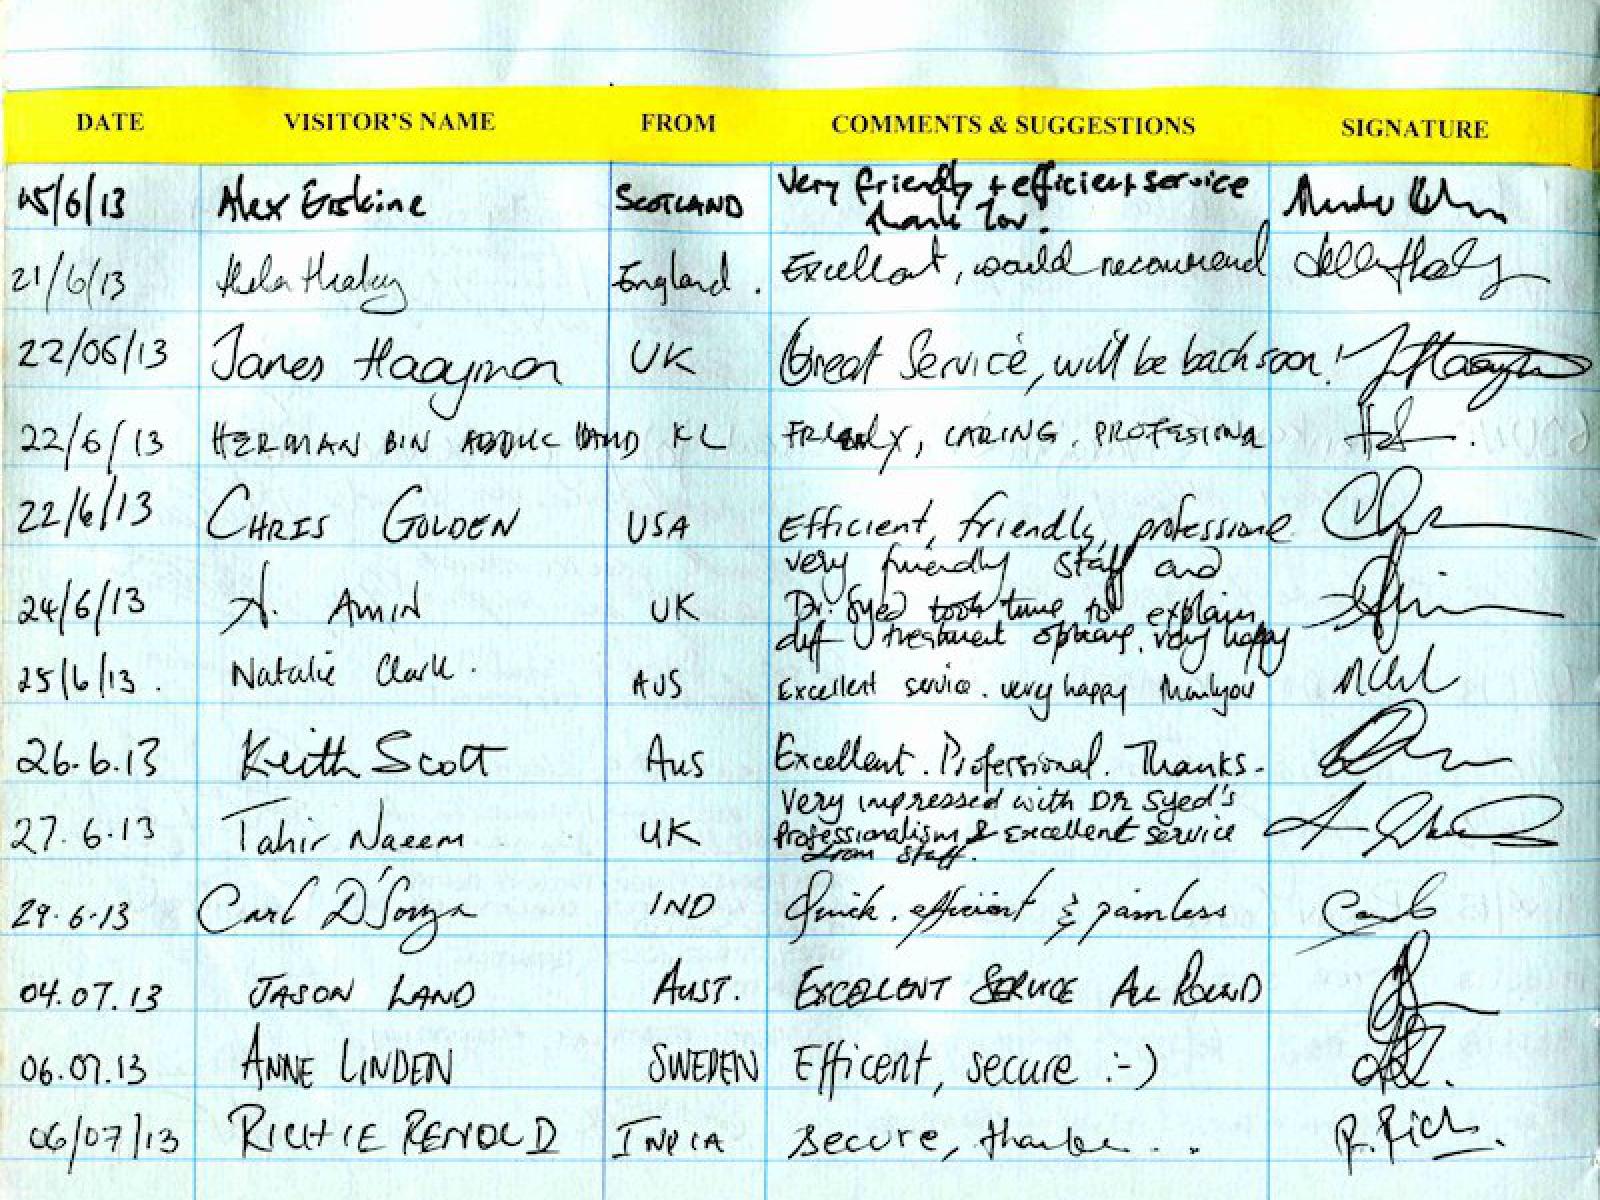 DATE VISITOR'S NAME FROM COMMENTS & SUGGESTIONS SIGNATURE
15/6/13 Alex Erskine SCOTLAND Very friendly + efficient service
thank you.
21/6/13 Healey England. Excellent, would recommend
22/06/13 James Haayman UK Great Service, will be back soon!
22/6/13 HERMAN BIN ABDUL KL FRIENDLY, CARING, PROFESIONA
22/6/13 CHRIS GOLDEN USA Efficient, friendly, professional
very friendly staff and
24/6/13 A. AMIN UK Dr. Syed took time to explain
diff treatment options. very happy
25/6/13. Natalie Clark. AUS Excellent service. very happy thankyou
26.6.13 Keith Scott Aus Excellent. Professional. Thanks.
Very impressed with DR Syed's
27.6.13 Tahir Naeem UK Professionalism & Excellent service
from staff.
29.6.13 Carl D'Souza IND Quick. efficient & painless
04.07.13 JASON LAND AUST. EXCELLENT SERVICE ALL ROUND
06.07.13 ANNE LINDEN SWEDEN Efficent, secure :-)
06/07/13 RICHIE RENOLD INDIA secure, thanks... R. Rich.